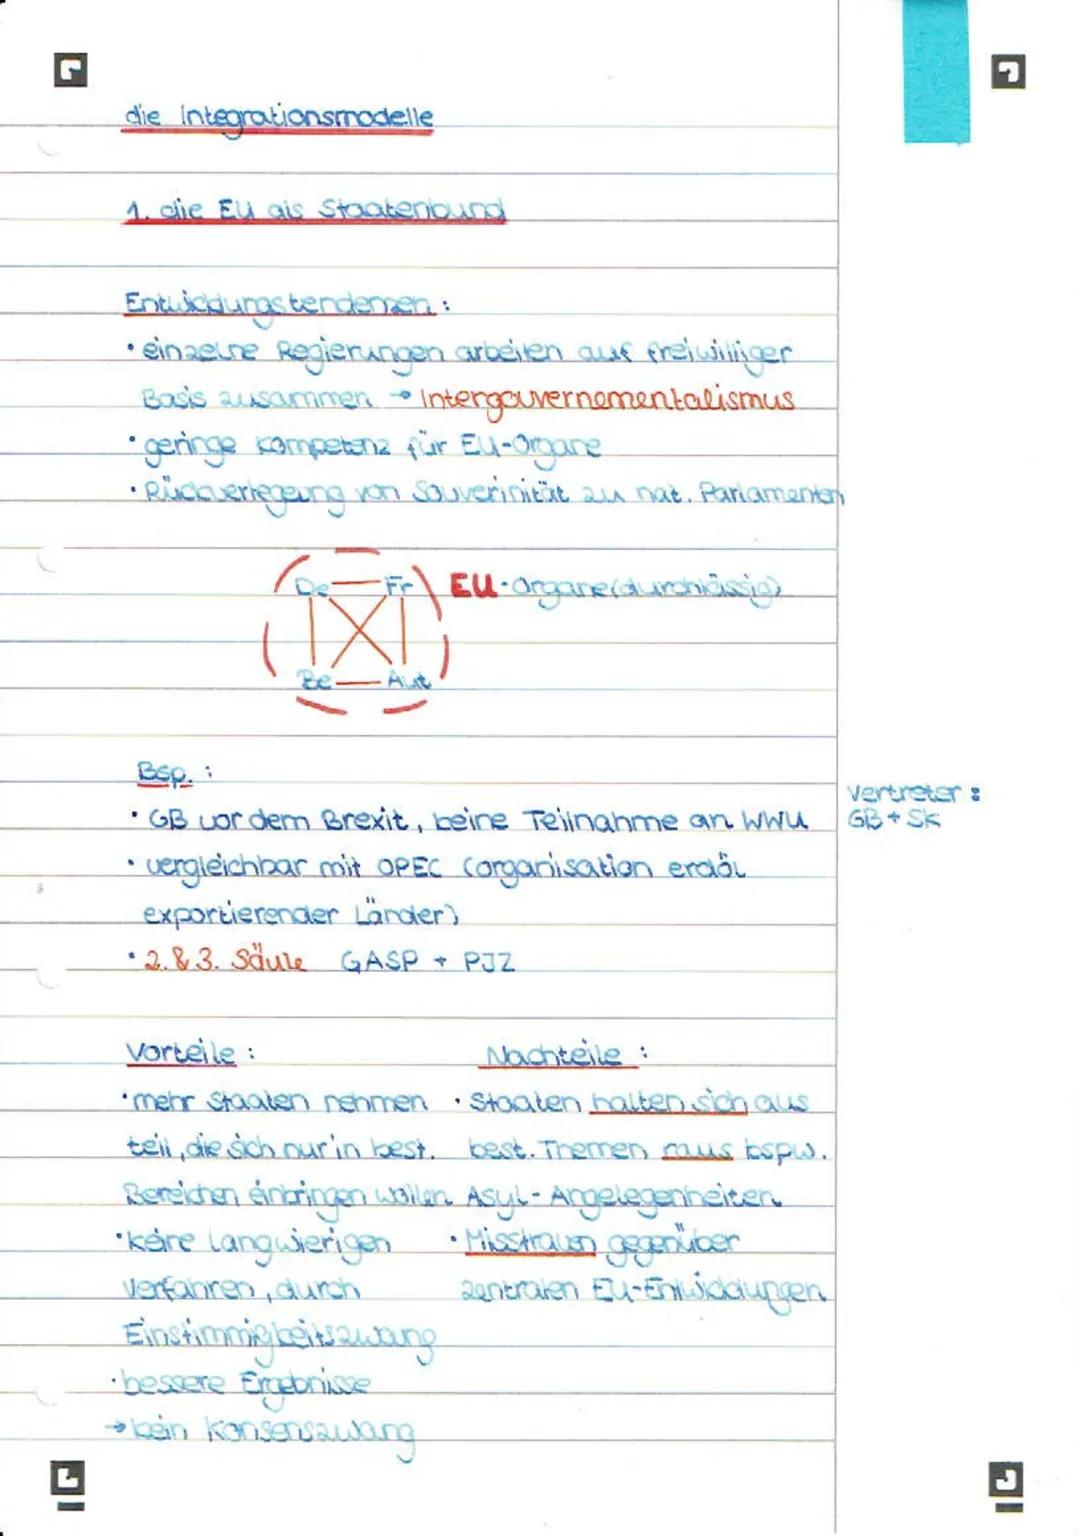 die Integrationsmodelle
1. die EU als Staatenbund
Entwicklungstendenzen :
• einzelne Regierungen arbeiten auf freiwilliger
Basis zusammen → Intergouvernementalismus
• geringe Kompetenz für EU-Organe
• Rückverlegung von Souverinität zu nat. Parlamenten
De Fr EU-Organe (durchlässig)
Be Aut
Bsp. :
• GB vor dem Brexit, keine Teilnahme an WWU
• vergleichbar mit OPEC (organisation erdöl
exportierender Länder)
• 2.&3. Säule GASP + PJZ
Vertreter :
GB + SK
Vorteile :
• mehr Staaten nehmen
teil, die sich nur in best.
Bereichen einbringen wollen
• keine langwierigen
Verfahren, durch
Einstimmigkeitszwang
• bessere Ergebnisse
→ kein Konsenszwang
Nachteile :
• Staaten halten sich aus
best. Themen raus bspw.
Asyl-Angelegenheiten
• Misstrauen gegenüber
zentralen EU-Entwicklungen